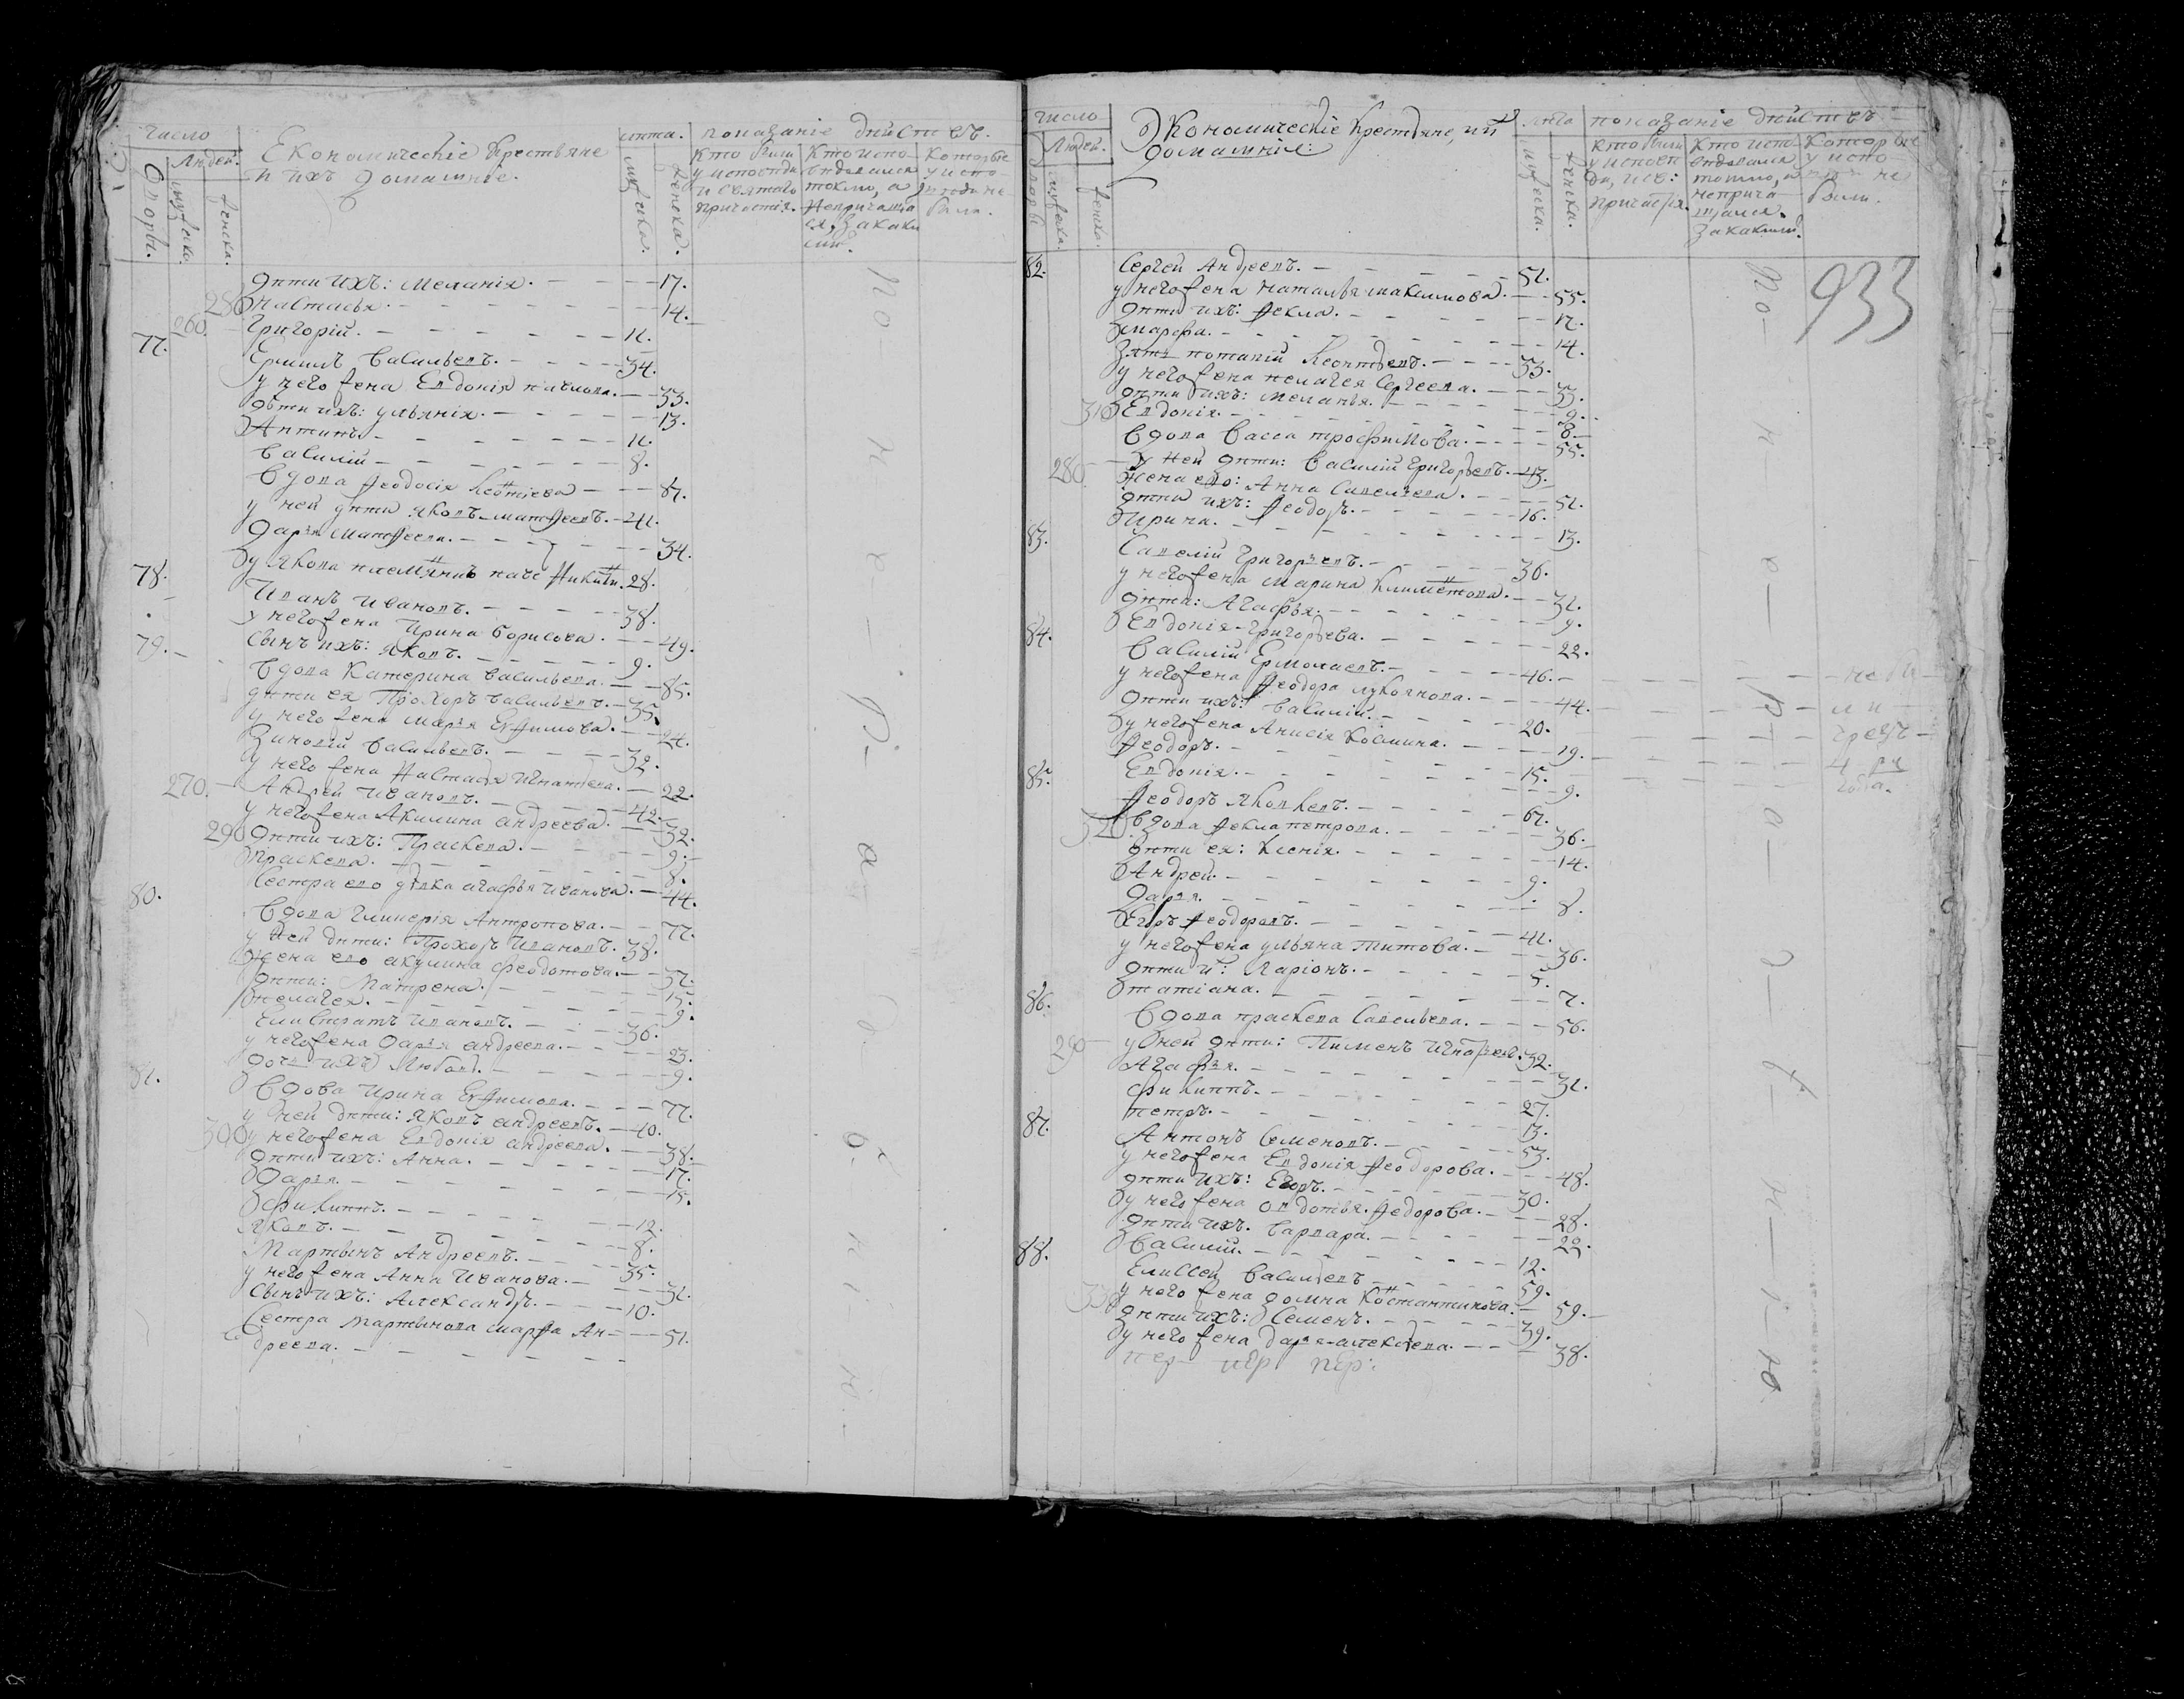 число
Людей.
Дворы.
мужеска.
женска.
Економическіе крестьяне
и ихъ домашніе.
лѣта.
мужеска.
женска.
показаніе дѣйствъ.
Кто были
у исповѣди
и святаго
причастія.
Кто испо-
вѣдался
токмо, а
непричаща
ся, за каки
ми.
Которые
у испо-
вѣди не
были.
дѣти ихъ: Меланія. 17.
280 настасья 14.
260. Григорій. 11.
77. Ермилъ Васильевъ. 34.
у него жена Евдокія павлова. 33.
дѣти ихъ: ульянія. 13.
Антипъ 11.
Василій 8.
Вдова Ѳеодосія Леонтіева 67.
у ней дѣти яковъ матѳеевъ. 41.
Дарья Матѳеева. 34.
у якова племяникъ 28.
78. Иванъ Ивановъ. 38.
у него жена Ирина борисова. 49.
Сынъ ихъ: яковъ. 9.
79. Вдова Катерина васильева. 85.
дѣти ея Прохоръ васильевъ. 35.
у него жена марья Евѳимова. 24.
Зиновій Васильевъ. 32.
у него жена Настасья Игнатьева. 22.
270. Андрей Ивановъ. 42.
у него жена Акилина андреева. 32.
290 дѣти ихъ: Праскева. 9.
праскева. 8.
Сестра ево дѣвка агафья иванова. 44.
80. Вдова Гликерія Антропова. 77.
у ней дѣти: Прохоръ Ивановъ. 38.
жена ево акулина феодотова. 37.
дѣти: Матрена. 15.
пелагея. 9.
Елистратъ Ивановъ. 36.
у него жена Дарья андреева. 23.
дочь ихъ Любовь. 9.
81. Вдова Ирина Евѳимова. 77.
у ней дѣти: яковъ андреевъ. 40.
300 у него жена Евдокія андреева. 38.
дѣти ихъ: Анна. 17.
Дарья. 15.
Филиппъ. 12.
яковъ. 8.
Мартынъ Андреевъ. 35.
у него жена Анна Иванова. 31.
Сынъ ихъ: Александръ. 10.
Сестра Мартынова марѳа Ан- 51.
дреева.
число
Людей.
дворы
мужеска.
женска.
Экономическіе крестьяне, ии
домашніе:
лѣта
мужеска.
женска.
показаніе дѣйствъ
Кто были
у исповѣ
ди, и св:
причастія.
Кто исп-
вѣдался
токмо, а
неприча
щался.
за какими.
Которые
у испо-
вѣди не
были.
933
82. Сергей Андреевъ. 51.
у него жена наталья максимова. 55.
дѣти ихъ: Ѳекла. 17.
марфа. 14.
Зять потапій Леонтьевъ. 33.
у него жена пелагея Сергеева. 33.
дѣти ихъ: Меланья. 9.
310 Евдокія. 8.
Вдова Васса трофимова. 55.
280 у ней дѣти: Василій Григорьевъ. 43.
жена ево: Анна Савельева. 51.
дѣти ихъ: Ѳеодоръ. 16.
Ирина. 13.
83. Савелій Григорьевъ. 36.
у него жена Марина Климентова. 31.
дѣти: Агафья. 9.
Евдокія Григорьева. 22.
84. Василій Ермолаевъ. 46.
у него жена Ѳеодора лукоянова. 44.
дѣти ихъ: Василій. 20.
у него жена Анисія Космина. 19.
Ѳеодоръ. 15.
Евдокія. 9.
85. Ѳеодоръ яковлевъ. 67.
320. Вдова Ѳекла петрова. 36.
дѣти ея: Ксенія. 14.
Андрей. 9.
Дарья. 8.
Егоръ Ѳеодоровъ. 41.
у него жена ульяна титова. 36.
дѣти и: Ларіонъ. 5.
татіана. 7.
86. Вдова праскева Савельева. 56.
290 у ней дѣти: Пименъ 32.
Агафья. 31.
филиппъ. 27.
петръ. 13.
87. Антонъ Семеновъ. 53.
у него жена Евдокія Ѳеодорова. 48.
дѣти ихъ: Егоръ. 30.
у него жена овдотья Ѳедорова. 28.
дѣти ихъ. Варвара. 22.
Василій. 12.
88. Елисей Васильевъ 59.
330 у него жена домна Костантинова. 59.
дѣти ихъ: Семенъ. 39.
у него жена дарья алексѣева. 38.